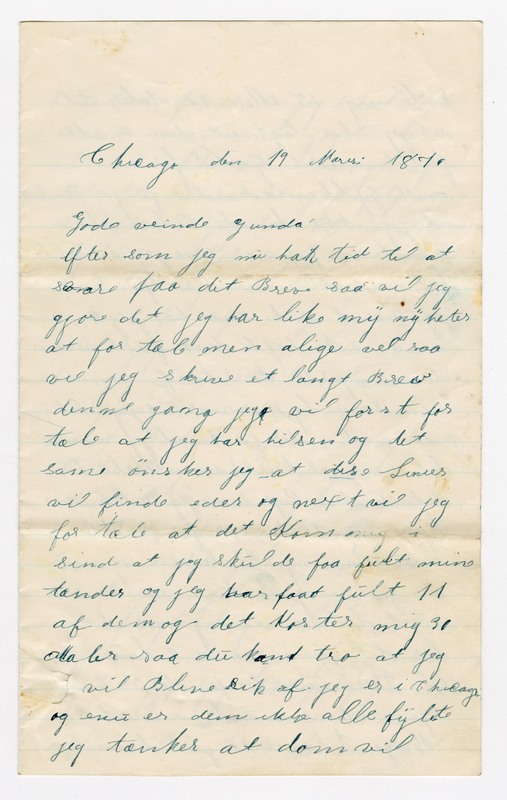 Chicago den 19 Marsi 187
Gode veinde Gunda
efter som jeg nu hah tid til at
svare faa dit Breve saa vil jeg
gjore det jeg har like my nyheter
at for tæle men alige vel saa
vil jeg skrive et langt Brev
denne gang jeg vil forst for
tæle at jeg har hilsen og det
same önsker jeg at dise Linier
vil finde eder og next vil jeg
for tæle at det Kom mig i
sind at jeg skulde faa fult mine
tænder og jeg har faat fült 11
af dem og det Koster mig 30
dalar saa du kant tro at jeg
vil Blive rik af jeg er i Chicago
og enu er dem ikke alle fylte
jeg tænker at dom vil